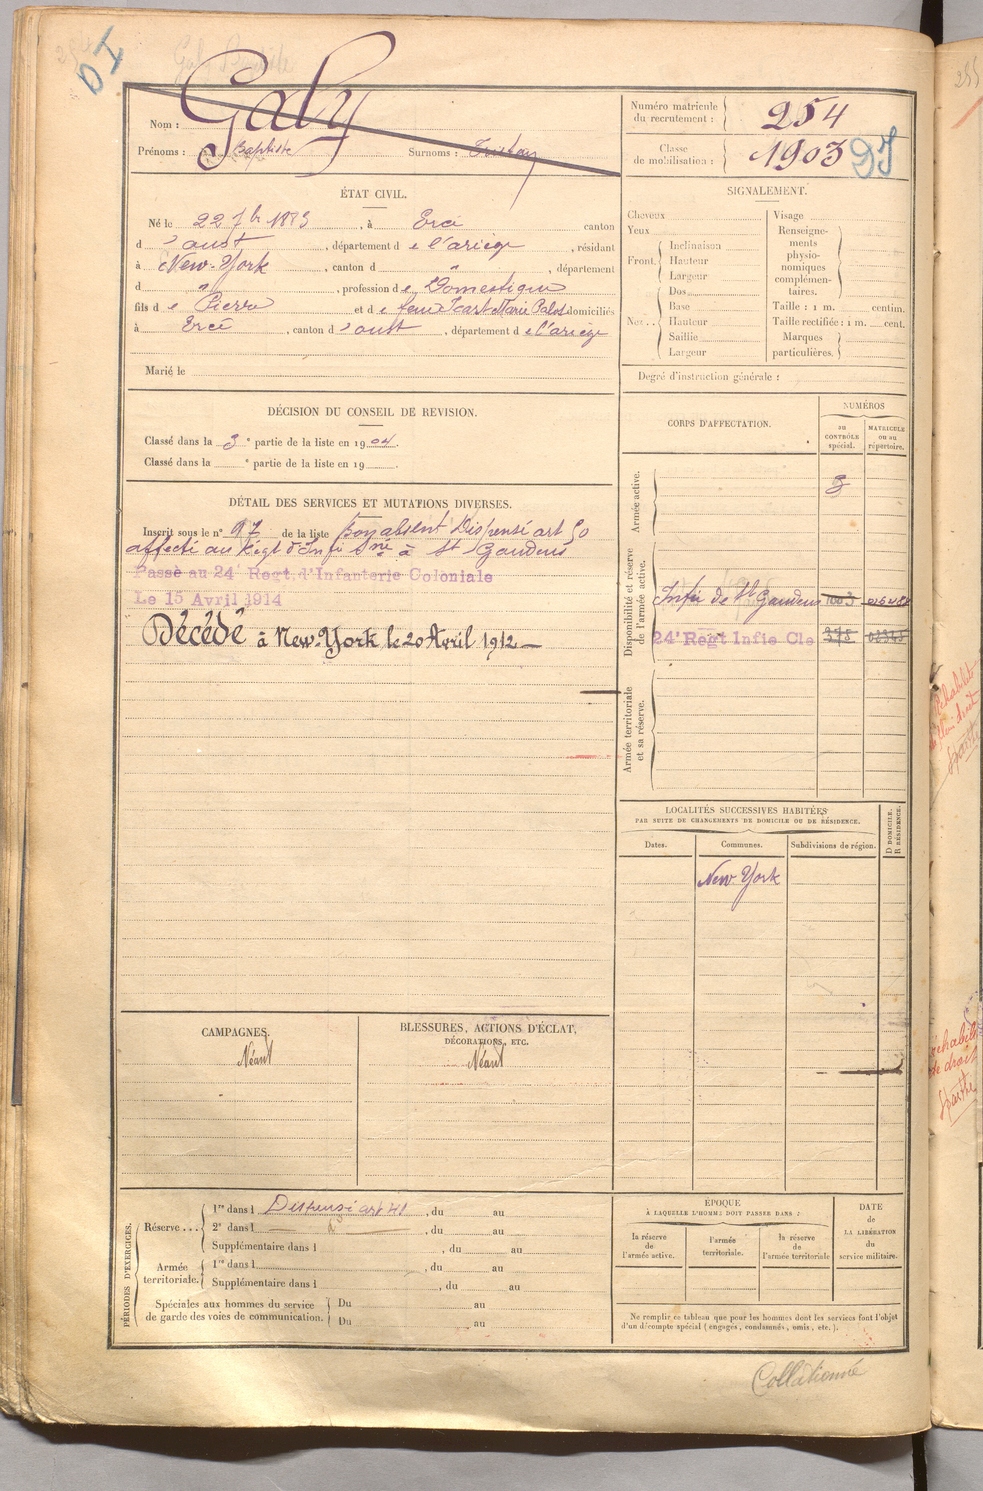 Gaby Baptiste
Nom : Gaby
Prénoms : Baptiste Surnoms : Tristan
Numéro matricule du recrutement : 254
Classe de mobilisation : 1903
ÉTAT CIVIL.
Né le 22 7bre 1883, à Ercé canton
d'oust, département de l'ariège, résidant
à New-York, canton d ", département
d ", profession de Domestique
fils de Pierre et de feue Icart Marie domiciliés
à Ercé, canton d'oust, département de l'ariège
Marié le
SIGNALEMENT.
Cheveux
Yeux
Front. Inclinaison
Hauteur
Largeur
Nez.. Dos
Base
Hauteur
Saillie
Largeur
Visage
Renseignements physionomiques complémentaires.
Taille : 1 m. centim.
Taille rectifiée : 1 m. cent.
Marques particulières.
Degré d'instruction générale :
DÉCISION DU CONSEIL DE REVISION.
Classé dans la 3e partie de la liste en 1904.
Classé dans la e partie de la liste en 19 .
DÉTAIL DES SERVICES ET MUTATIONS DIVERSES.
Inscrit sous le n° 97 de la liste bon absent Dispensé art 50
affecté au Régt d'Infie à St Gaudens
Passé au 24e Regt. d'Infanterie Coloniale
Le 15 Avril 1914
Décédé à New-York le 20 Avril 1912
CORPS D'AFFECTATION.
NUMÉROS
au CONTRÔLE spécial.
MATRICULE ou au répertoire.
Armée active.
3
Disponibilité et réserve de l'armée active.
Infie de St Gaudens 1003
24e Regt Infie Cle 378
Armée territoriale et sa réserve.
LOCALITÉS SUCCESSIVES HABITÉES
PAR SUITE DE CHANGEMENTS DE DOMICILE OU DE RÉSIDENCE.
Dates. Communes. Subdivisions de région. D DOMICILE. R RÉSIDENCE.
New-York
CAMPAGNES.
Néant
BLESSURES, ACTIONS D'ÉCLAT,
DÉCORATIONS, ETC.
Néant
PÉRIODES D'EXERCICES.
Réserve ... 1re dans l Dispensé art 41, du au
2e dans l , du au
Supplémentaire dans l , du au
Armée territoriale. 1re dans l , du au
Supplémentaire dans l , du au
Spéciales aux hommes du service de garde des voies de communication. Du au
Du au
ÉPOQUE
À LAQUELLE L'HOMME DOIT PASSER DANS :
la réserve de l'armée active.
l'armée territoriale.
la réserve de l'armée territoriale
DATE de LA LIBÉRATION du service militaire.
Ne remplir ce tableau que pour les hommes dont les services font l'objet
d'un décompte spécial (engagés, condamnés, omis, etc.).
Collationné